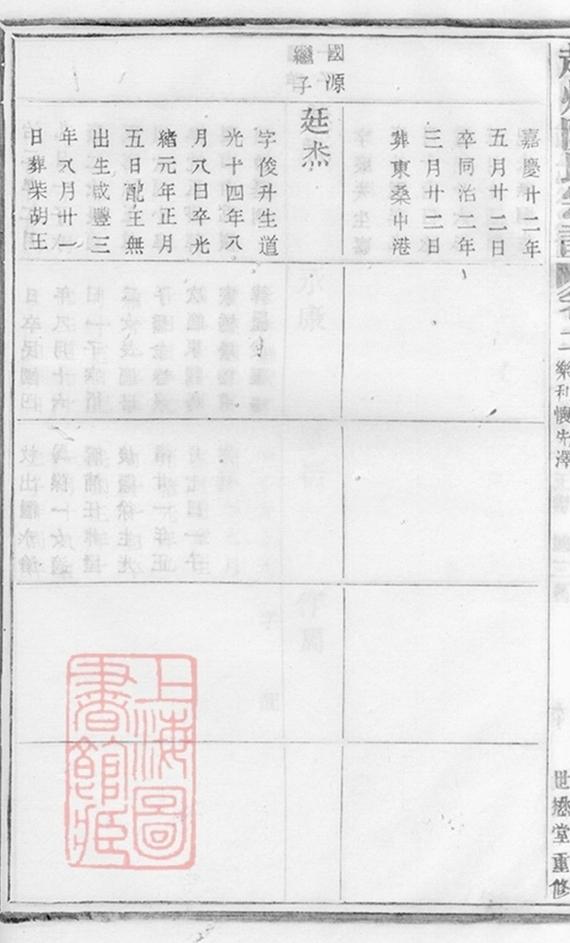 嘉慶廿二年
五月廿二日
卒同治二年
三月廿二日
葬東桑中港
國源
繼子
廷杰
字俊升生道
光十四年八
月八日卒光
緒元年正月
五日配王無
出生咸豐三
年八月廿一
日葬柴胡王
卷二
樂和懷先澤
世懋堂重修
上海圖
書館藏